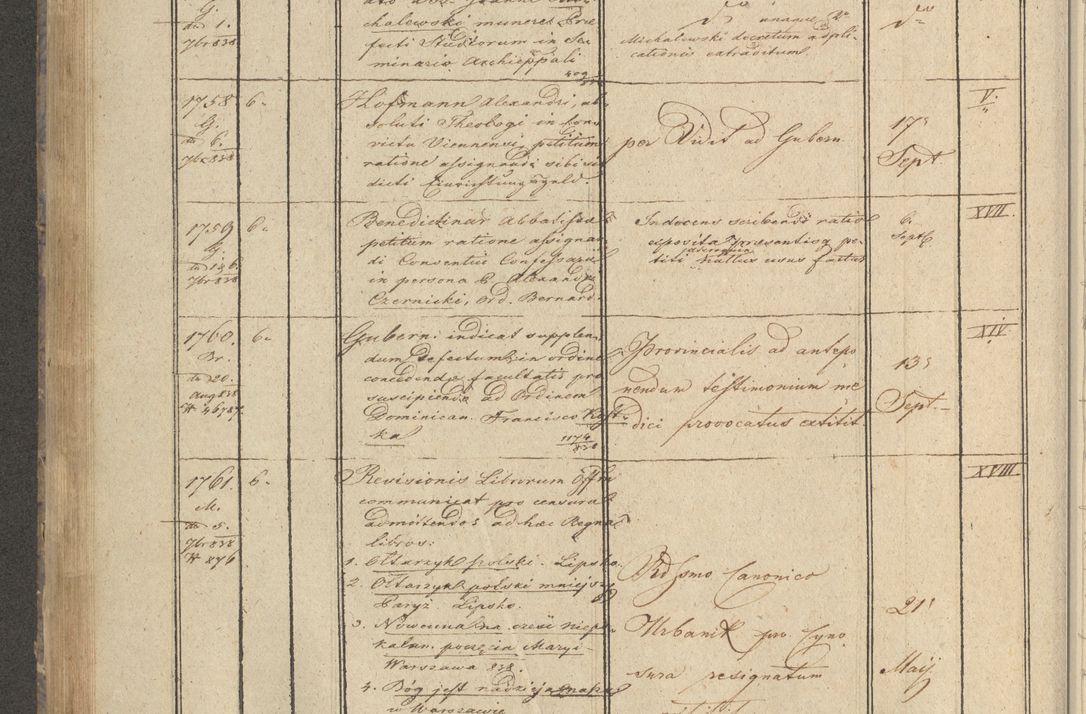 G.
dto 1.
7br 838
chalewski muneris Prae
fecti Studiorum in Se
minario Archieppali
Michalewski decretum adpli
cationis extraditum
1758
G.
dto 6.
7br 838
6.
Hofmann Alexandri, ab
soluti Theologi in Con
victu Viennensi, petitum
ratione assignandi sibi
dicti Einrichtungsgeld.
per Vidit ad Gubern
17
Sept
V.
1759
G.
7br 838
6.
Benedictinar Abbatissae
petitum ratione assignan
di Consentii Confessarii
in persona P. Alexandri
Czernicki, Ord. Bernard.
In docens scribendi ratio
exposita praesentisq pe
titi nullus usus factus
6.
Sept
XVII.
1760.
Br.
dto 20.
Aug 838
N 46787.
6.
Gubern: indicat supplen
dum defectum in ordine
concedendae facultatis pro
suscipiendo ad Ordinem
Dominican. Francisco
ka
1174
838
Provincialis ad antepo
nendum testimonium me
dici provocatus extitit
13
Sept.
XIV.
1761.
M.
dto 5.
7br 838
N 876
6.
Revisionis Librorum Offm
communicat pro censura
admittendos ad haec Regna
libros:
1. Ołtarzyk polski. Lipsko.
2. Ołtarzyk polski mniejszy
Paryż Lipsko.
3. Nowenna na cześć niep.
kalan. poczęcia Maryi
Warszawa 838.
4. Bóg jest nadzieją
w Warszawie
Rdssmo Canonico
Urbanik pro Cyno
sura resignatum
21
Maij
XVIII